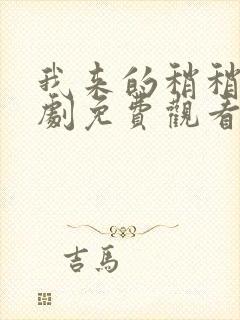 我來的稍稍
劇免費觀看
吉馬